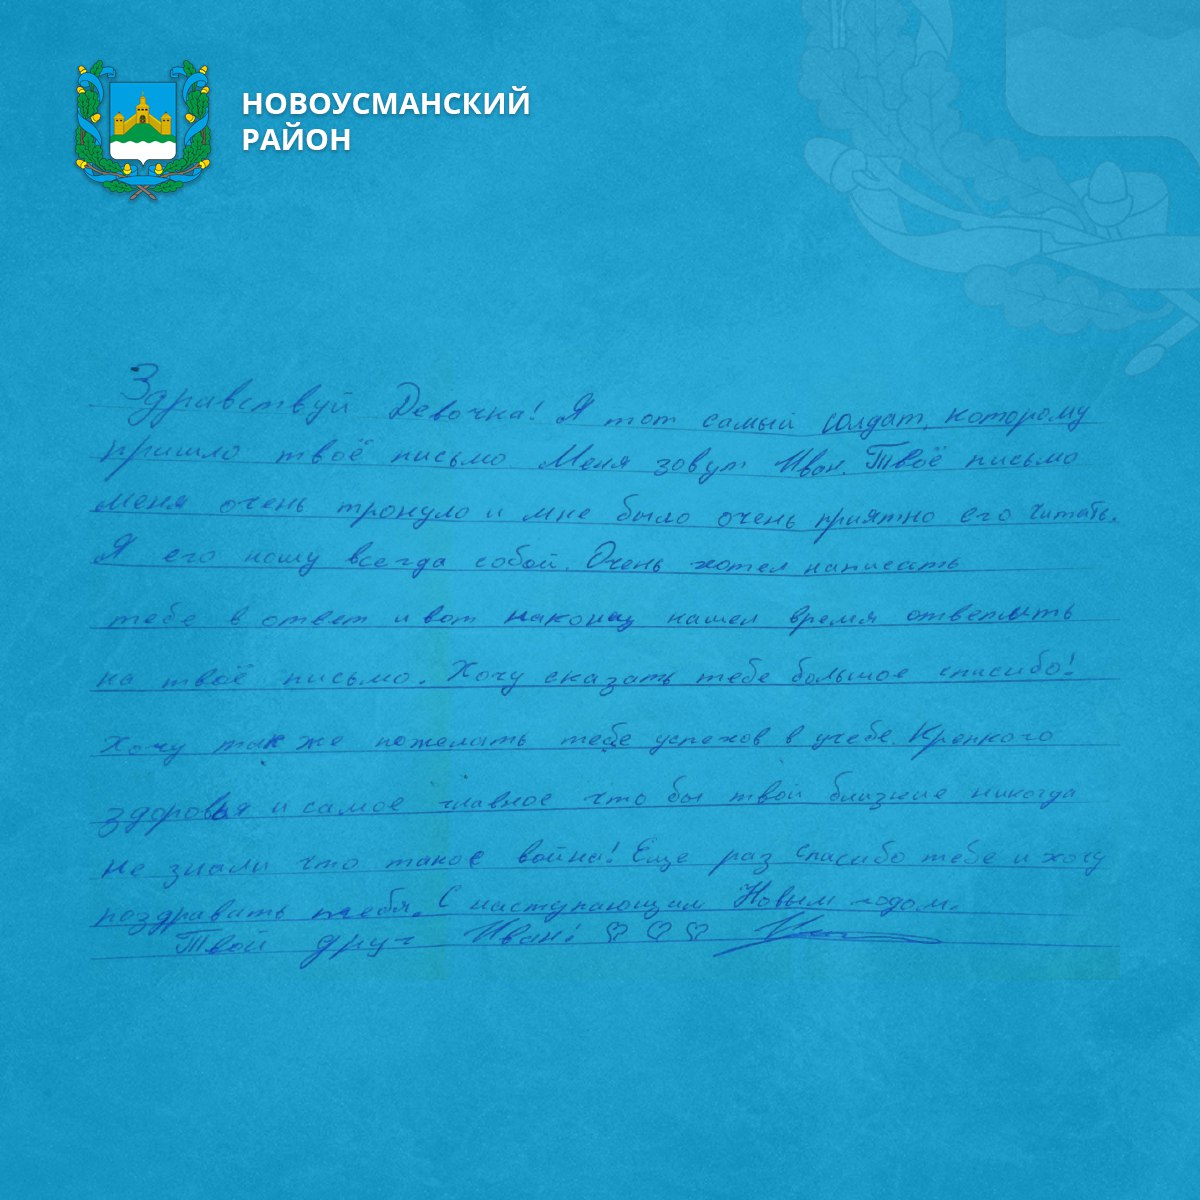 НОВОУСМАНСКИЙ
РАЙОН
Здравствуй Девочка! Я тот самый солдат, которому
пришло твоё письмо Меня зовут Иван. Твоё письмо
меня очень тронуло и мне было очень приятно его читать.
Я его ношу всегда собой. Очень хотел написать
тебе в ответ и вот наконец нашел время ответить
на твоё письмо. Хочу сказать тебе большое спасибо!
Хочу так же пожелать тебе успехов в учебе. Крепкого
здоровья и самое главное что бы твои близкие никогда
не знали что такое война! Еще раз спасибо тебе и хочу
поздравить тебя. С наступающим Новым годом.
Твой друг Иван! ♡ ♡ ♡